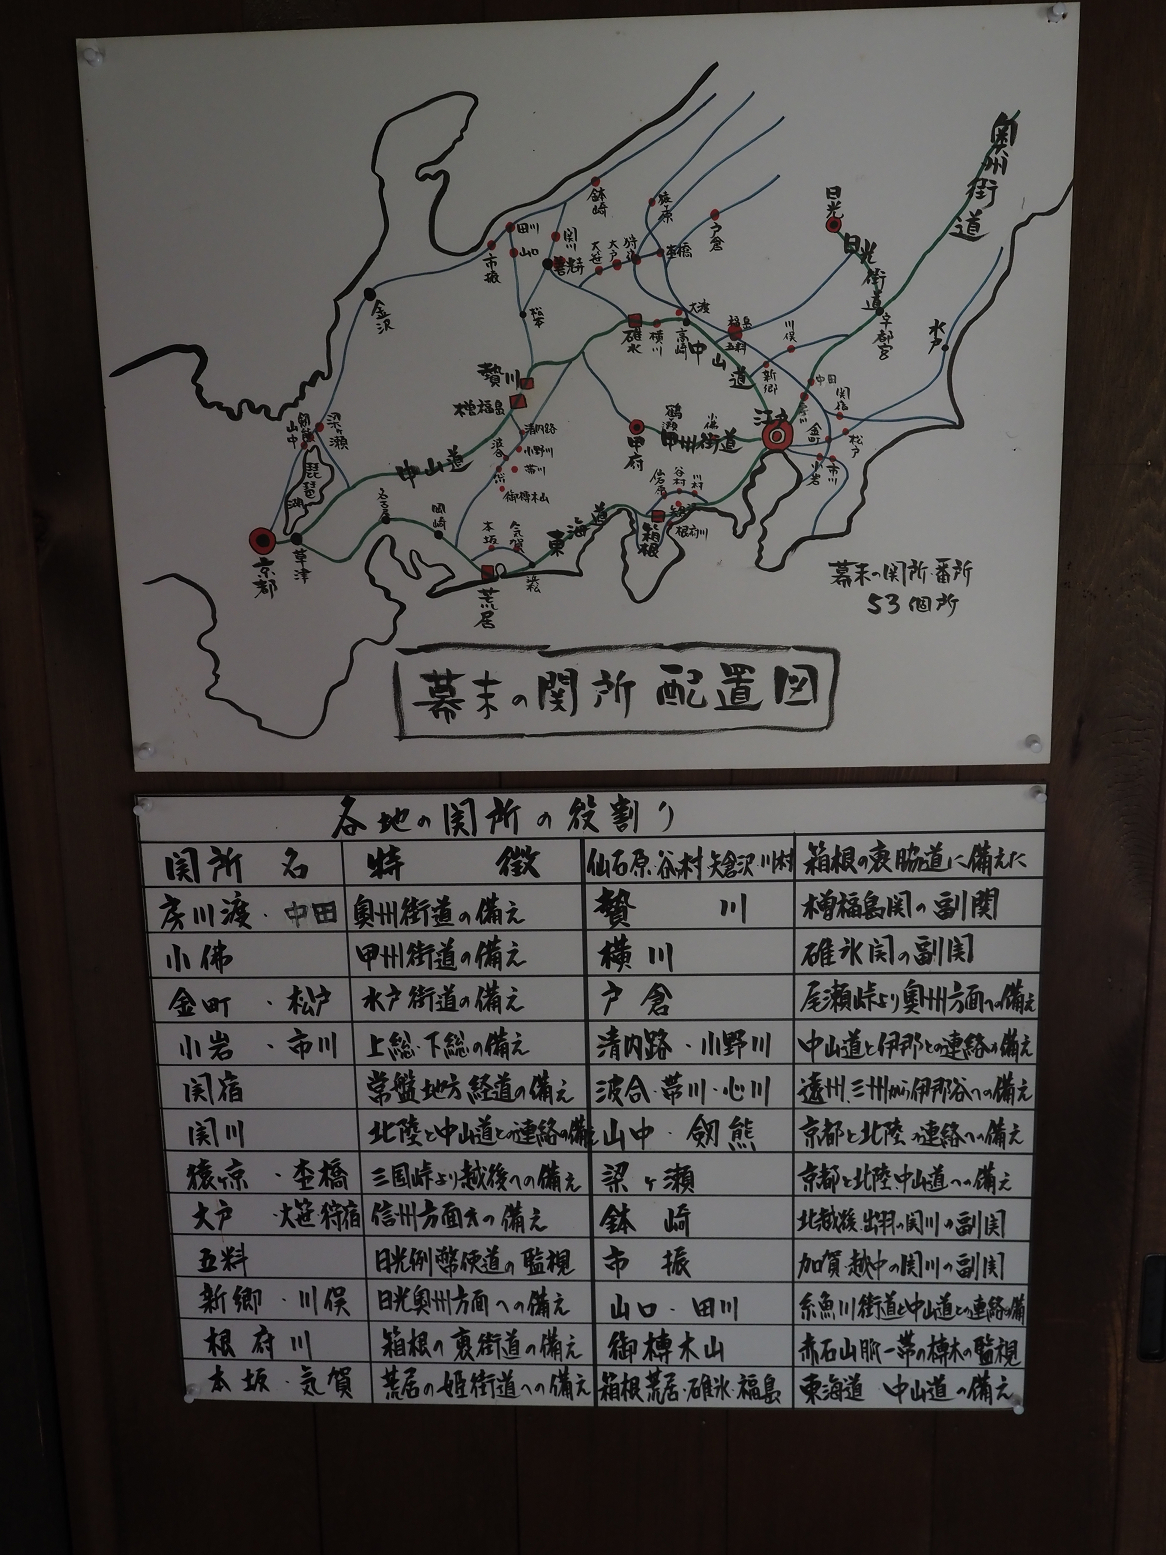 奥州街道
日光
日光街道
鉢崎
猿ヶ京
戸倉
田川
山口
市振
関川
善光寺
大笹
大戸
狩宿
杢橋
金沢
松本
大渡
碓氷
横川
高崎
福島
五料
川俣
宇都宮
水戸
中山道
新郷
中田
関宿
贄川
木曽福島
剱熊
山中
梁ヶ瀬
琵琶湖
中山道
清内路
小野川
帯川
御榑木山
甲府
鶴瀬
小佛
甲州街道
江戸
金町
松戸
小岩
市川
谷村
川村
箱根
根府川
名古屋
岡崎
本坂
気賀
東海道
浜松
荒居
京都
草津
幕末の関所・番所
53個所
幕末の関所配置図
各地の関所の役割り
関所名 特徴 仙石原・谷村 矢倉沢・川村 箱根の裏脇道に備えた
房川渡・中田 奥州街道の備え 贄川 木曽福島関の副関
小佛 甲州街道の備え 横川 碓氷関の副関
金町・松戸 水戸街道の備え 戸倉 尾瀬峠より奥州方面への備え
小岩・市川 上総・下総の備え 清内路・小野川 中山道と伊那との連絡の備え
関宿 常盤地方経道の備え 波合・帯川・心川 遠州、三州から伊那谷への備え
関川 北陸と中山道との連絡の備え 山中・剱熊 京都と北陸の連絡への備え
猿ヶ京・杢橋 三国峠より越後への備え 梁ヶ瀬 京都と北陸、中山道への備え
大戸・大笹狩宿 信州方面への備え 鉢崎 北越後、出羽の関川の副関
五料 日光例幣使道の監視 市振 加賀・越中の関川の副関
新郷・川俣 日光奥州方面への備え 山口・田川 糸魚川街道と中山道との連絡の備
根府川 箱根の裏街道の備え 御榑木山 赤石山脈一帯の榑木の監視
本坂・気賀 荒居の姫街道への備え 箱根 荒居・碓氷・福島 東海道 中山道の備え